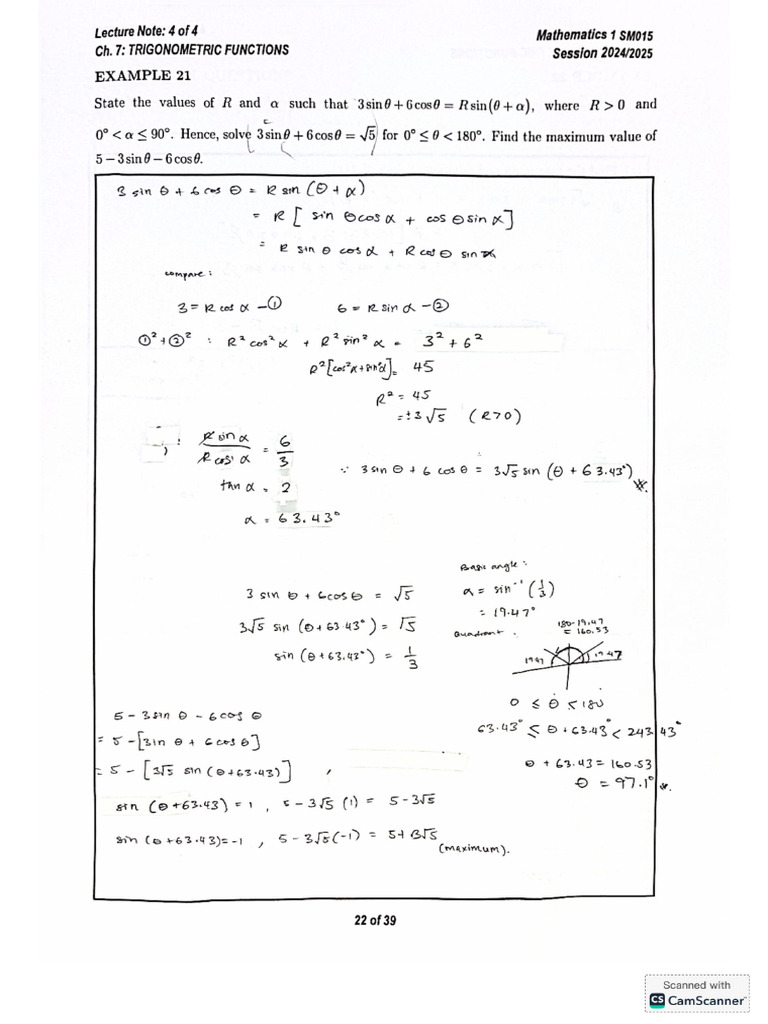 Lecture Note: 4 of 4
Mathematics 1 SM015
Ch. 7: TRIGONOMETRIC FUNCTIONS
Session 2024/2025
EXAMPLE 21
State the values of R and α such that 3sinθ + 6cosθ = Rsin(θ + α), where R > 0 and
0° < α ≤ 90°. Hence, solve 3sinθ + 6cosθ = √5 for 0° ≤ θ < 180°. Find the maximum value of
5 − 3sinθ − 6cosθ.
3 sin θ + 6 cos θ = R sin (θ + α)
= R [ sin θ cos α + cos θ sin α ]
= R sin θ cos α + R cos θ sin α
compare :
3 = R cos α − ①
6 = R sin α − ②
①² + ②² : R² cos² α + R² sin² α = 3² + 6²
R² [cos² α + sin² α] = 45
R² = 45
= ± 3√5 (R > 0)
: R sin α / R cos α = 6/3
tan α = 2
α = 63.43°
∵ 3 sin θ + 6 cos θ = 3√5 sin (θ + 63.43°) #.
3 sin θ + 6 cos θ = √5
3√5 sin (θ + 63.43°) = √5
sin (θ + 63.43°) = 1/3
Basic angle :
α = sin⁻¹ (1/3)
= 19.47°
Quadrant .
180 - 19.47
= 160.53
19.47 19.47
0 ≤ θ < 180
63.43° ≤ θ + 63.43° < 243.43°
θ + 63.43 = 160.53
θ = 97.1° #.
5 − 3 sin θ − 6 cos θ
= 5 − [3 sin θ + 6 cos θ]
= 5 − [3√5 sin (θ + 63.43)] ,
sin (θ + 63.43) = 1 , 5 − 3√5 (1) = 5 − 3√5
sin (θ + 63.43) = −1 , 5 − 3√5 (−1) = 5 + 3√5
(maximum).
22 of 39
Scanned with
CS CamScanner